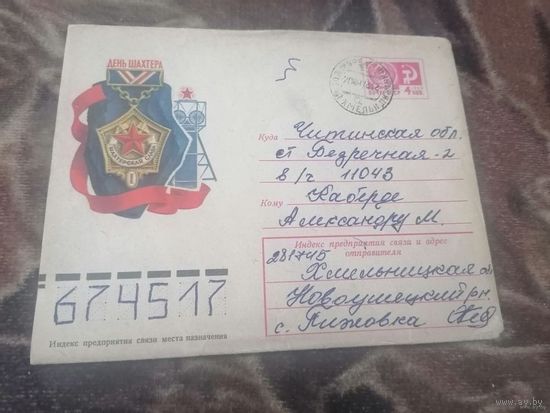 ДЕНЬ ШАХТЕРА
ШАХТЕРСКАЯ СЛАВА
4
Куда Читинская обл.
ст Безречная-2
в/ч 11043
Кому
Александру М.
Индекс предприятия связи и адрес
отправителя
281745
Хмельницкая
Новоушецкий рн
с. Пижовка
674517
Индекс предприятия связи места назначения
www.ay.by